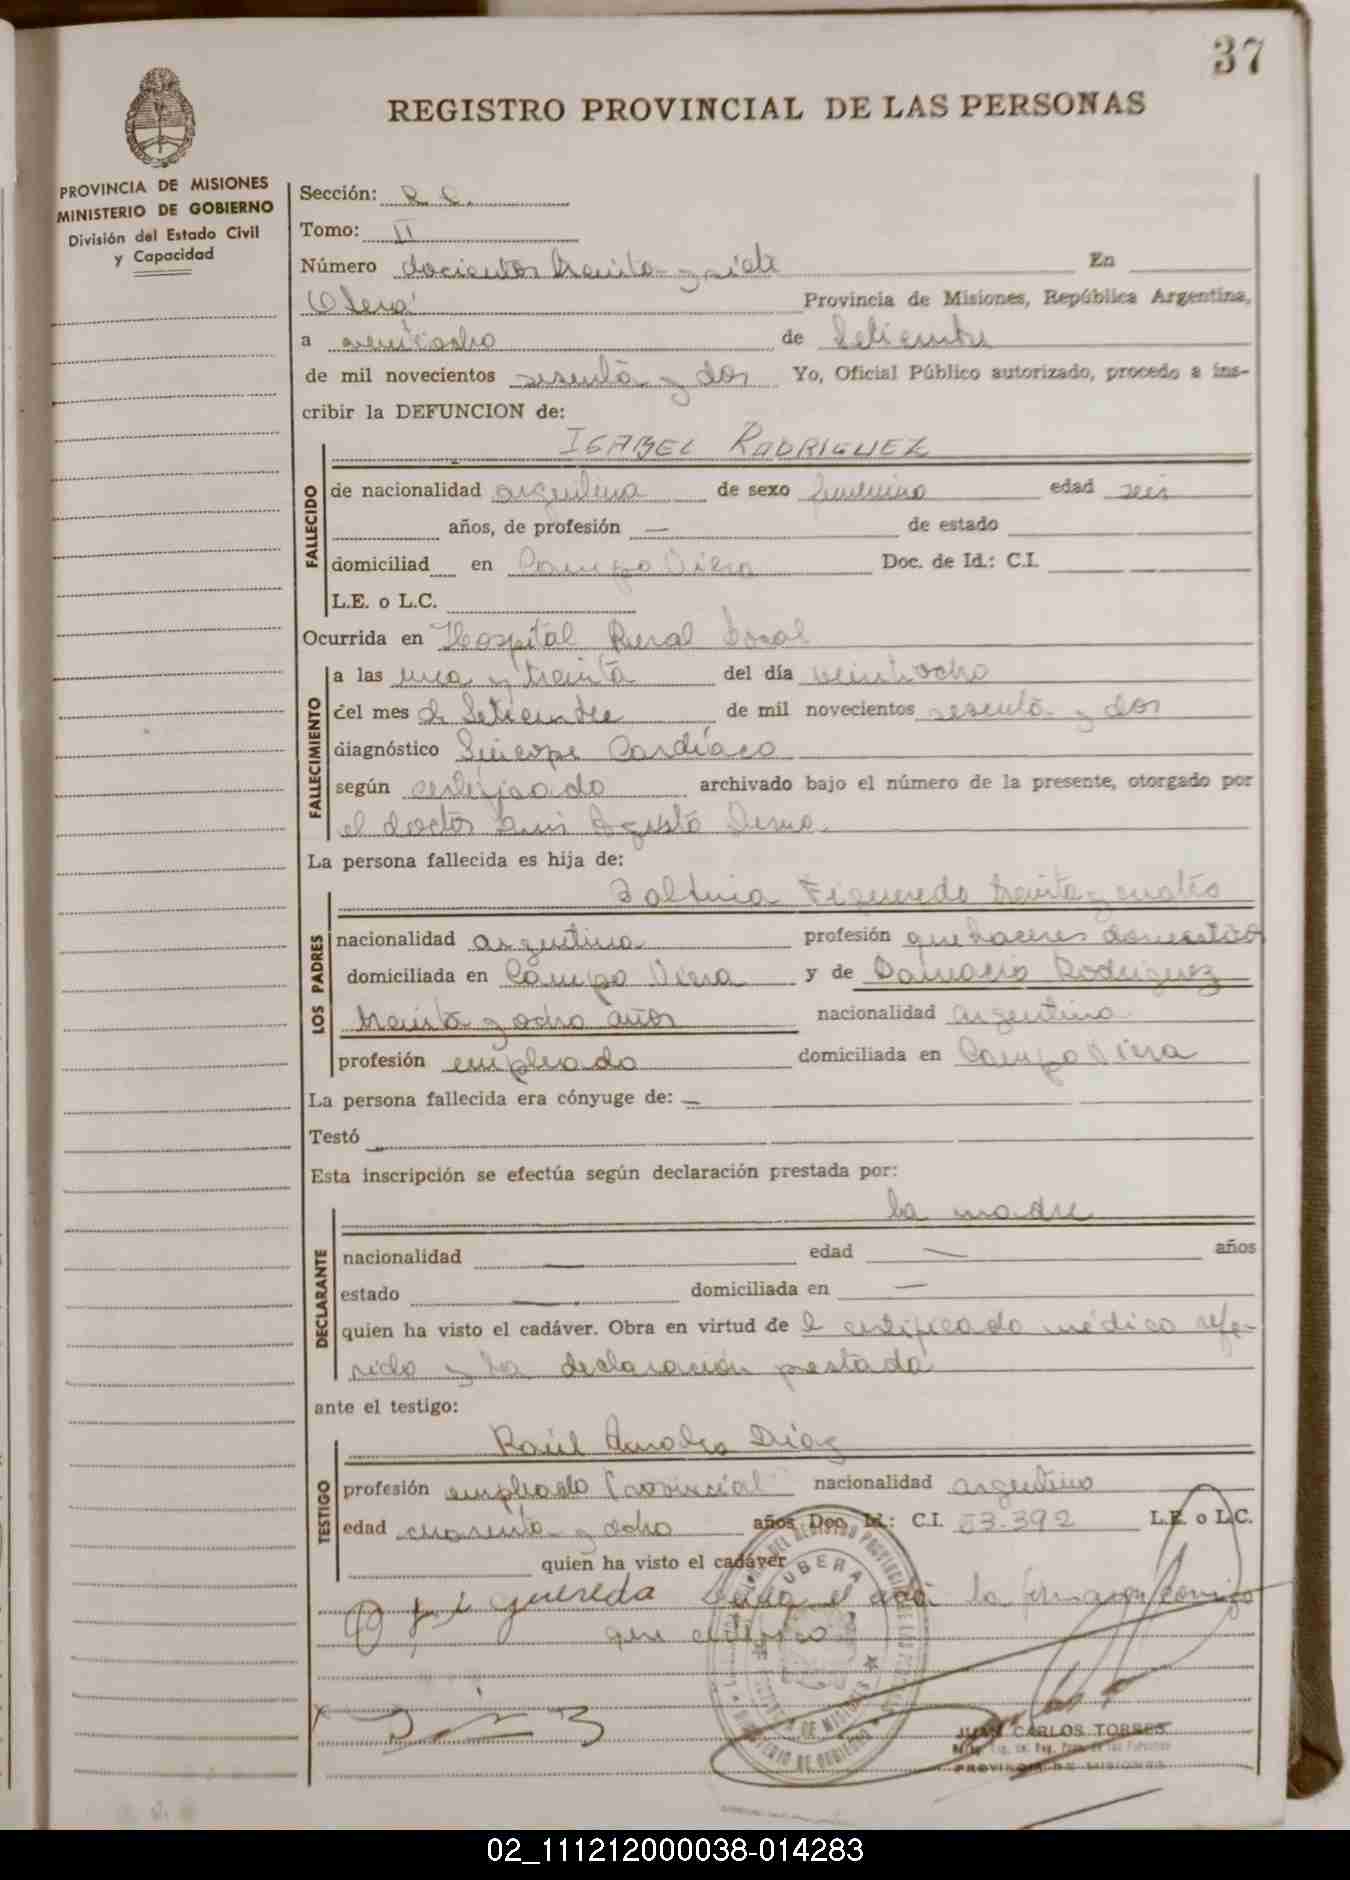 37
REGISTRO PROVINCIAL DE LAS PERSONAS
PROVINCIA DE MISIONES
MINISTERIO DE GOBIERNO
División del Estado Civil
y Capacidad
Sección:
Tomo: II
Número docientos treinta y siete En
Oberá Provincia de Misiones, República Argentina,
a veintiocho de Setiembre
de mil novecientos sesenta y dos Yo, Oficial Público autorizado, procedo a ins-
cribir la DEFUNCION de:
ISABEL RODRIGUEZ
FALLECIDO
de nacionalidad argentina de sexo femenino edad seis
años, de profesión — de estado
domiciliad en Campo Viera Doc. de Id.: C.I.
L.E. o L.C.
Ocurrida en Hospital Rural local
FALLECIMIENTO
a las una y treinta del día veintiocho
del mes de Setiembre de mil novecientos sesenta y dos
diagnóstico Síncope Cardíaco
según certificado archivado bajo el número de la presente, otorgado por
el doctor Luis
La persona fallecida es hija de:
LOS PADRES
Figueredo treinta y cuatro
nacionalidad argentina profesión quehaceres domesticos
domiciliada en Campo Viera y de Damacio Rodriguez
treinta y ocho años nacionalidad argentino
profesión empleado domiciliada en Campo Viera
La persona fallecida era cónyuge de: —
Testó
Esta inscripción se efectúa según declaración prestada por:
DECLARANTE
la madre
nacionalidad — edad — años
estado — domiciliada en —
quien ha visto el cadáver. Obra en virtud de l certificado médico refe-
rido y la declaración prestada
ante el testigo:
TESTIGO
Raúl Díaz
profesión empleado Provincial nacionalidad argentino
edad cuarenta y ocho años Doc. Id.: C.I. 53.392 L.E. o L.C.
quien ha visto el cadáver
figuereda el acá la
que certifico
OBERA
JUAN CARLOS TORRES
PROVINCIA DE MISIONES
02_111212000038-014283